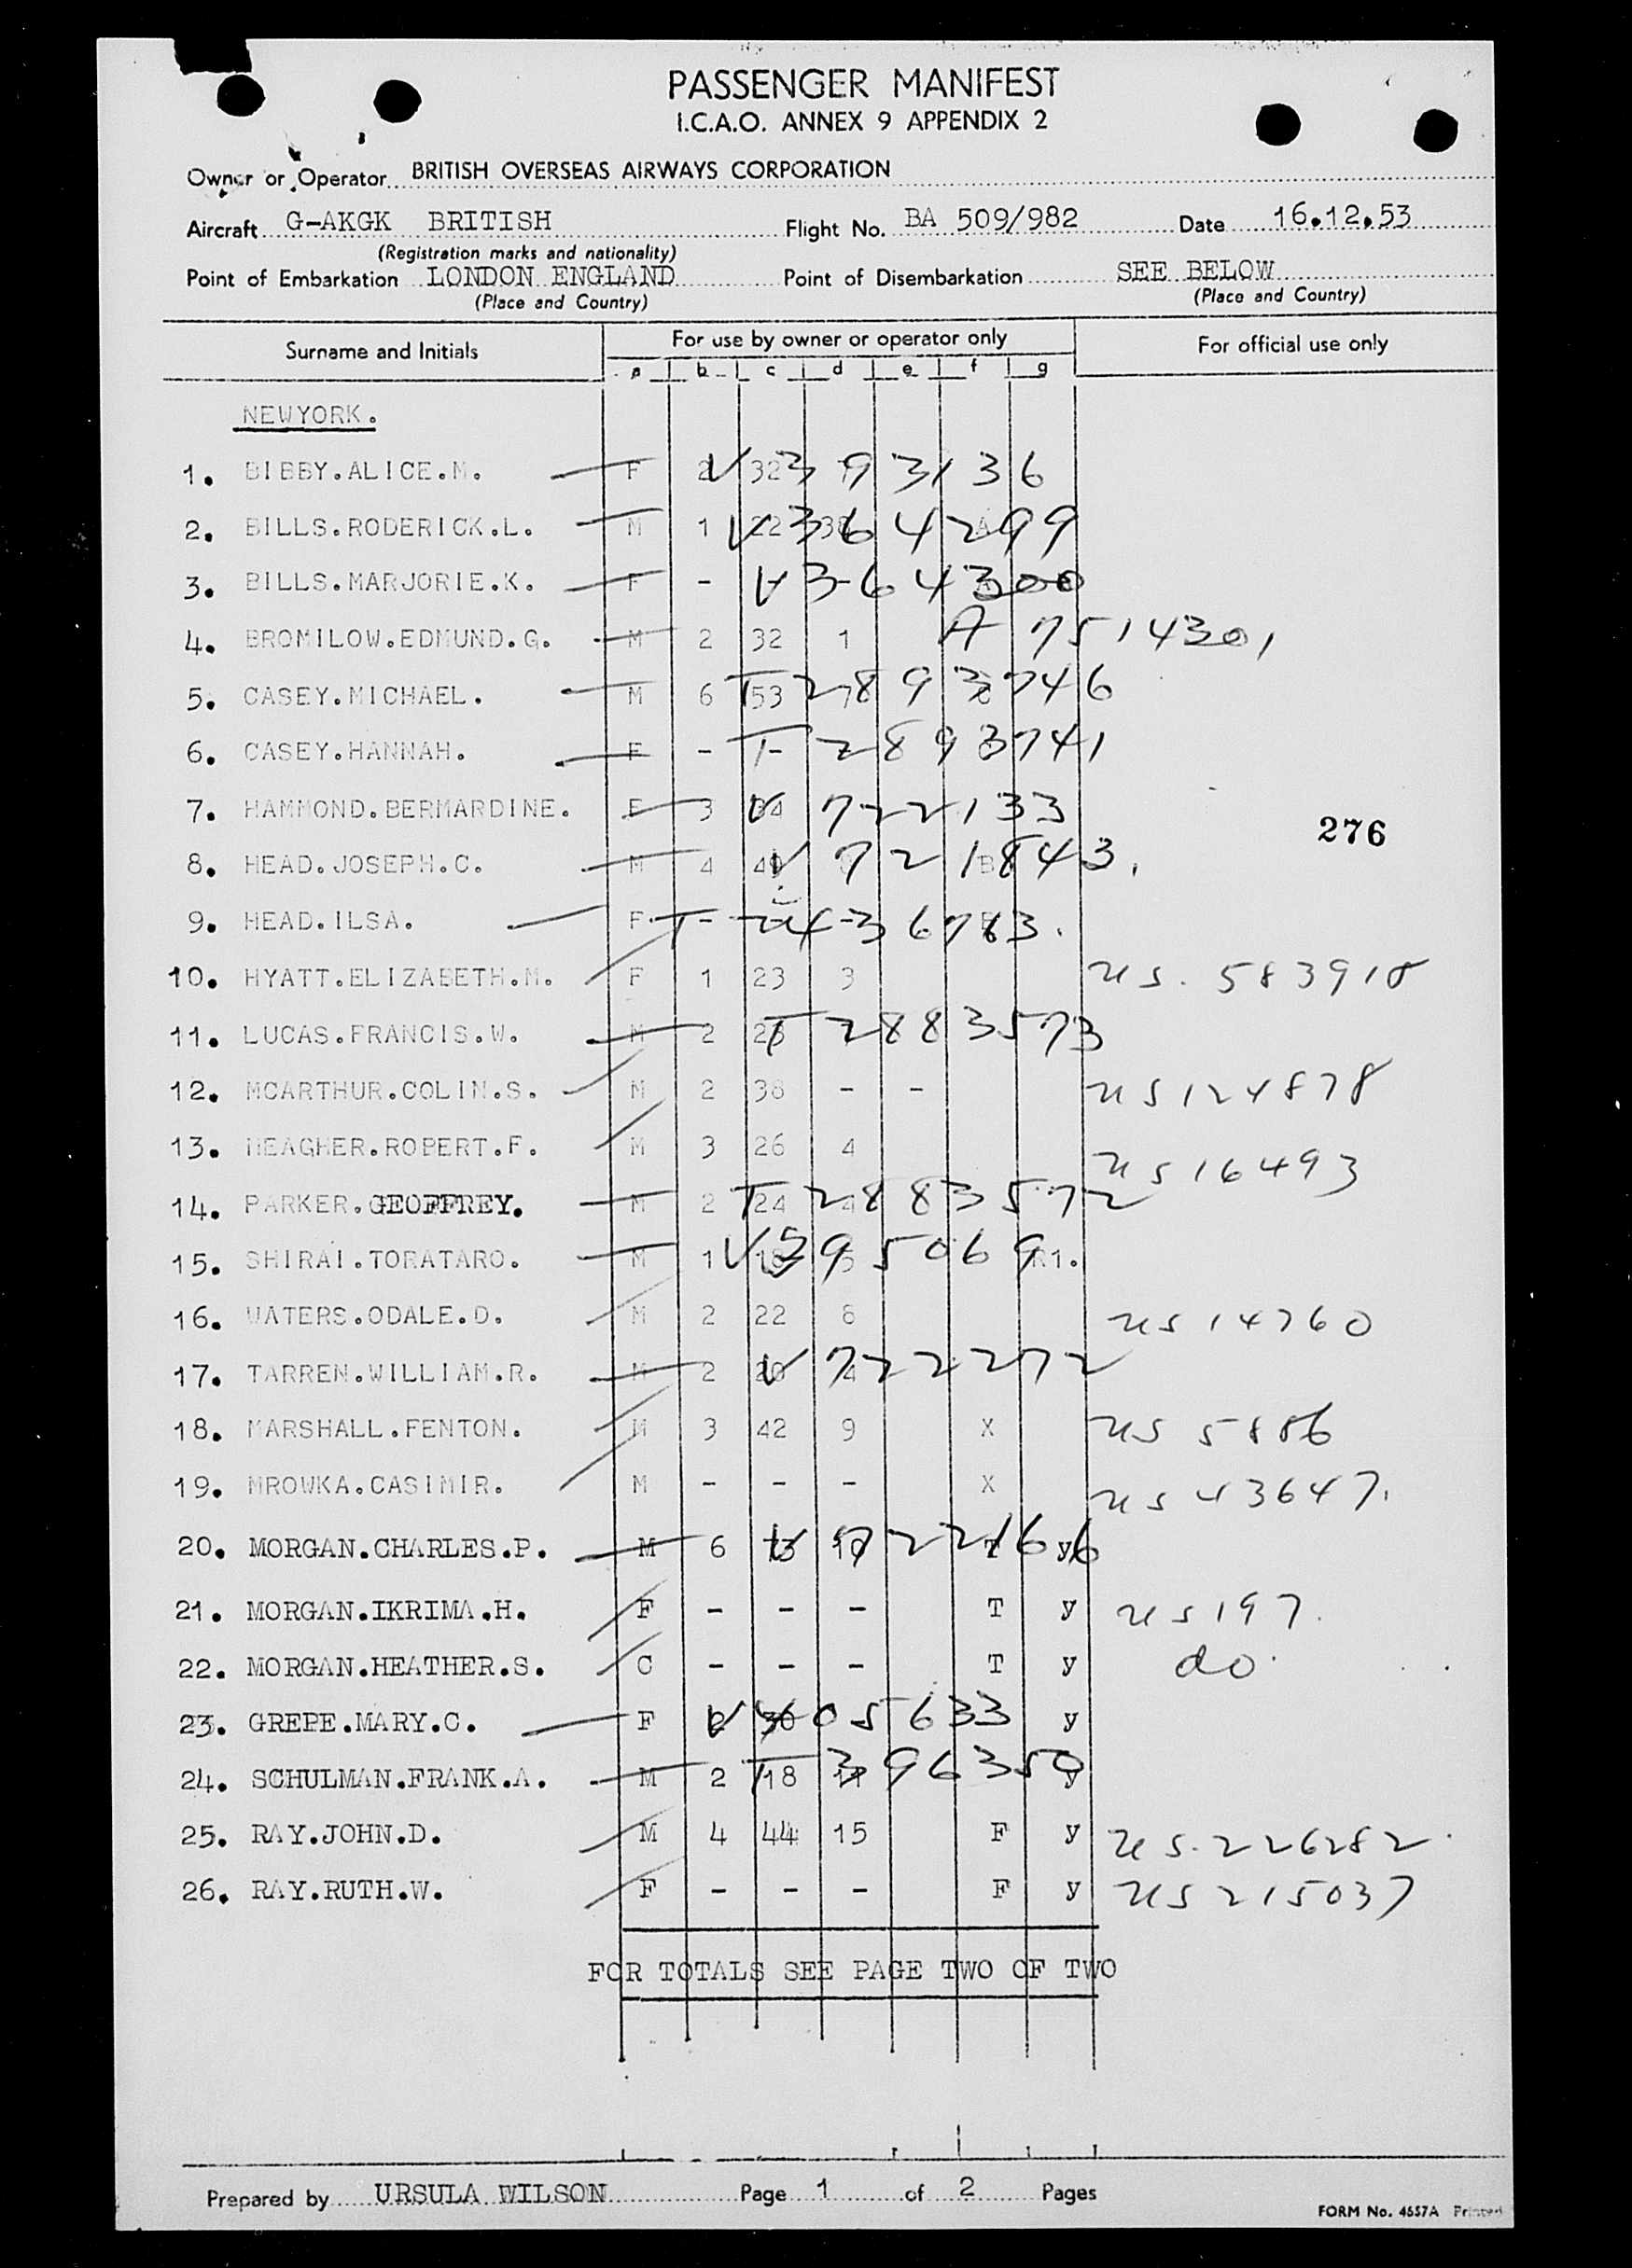 PASSENGER MANIFEST
I.C.A.O. ANNEX 9 APPENDIX 2
Owner or Operator BRITISH OVERSEAS AIRWAYS CORPORATION
Aircraft G-AKGK BRITISH Flight No. BA 509/982 Date 16.12.53
(Registration marks and nationality)
Point of Embarkation LONDON ENGLAND Point of Disembarkation SEE BELOW
(Place and Country) (Place and Country)
Surname and Initials For use by owner or operator only For official use only
a b c d e f g
NEWYORK.
1. BIBBY.ALICE.M. F 2 32 V 393136
2. BILLS.RODERICK.L. M 1 22 V 364299
3. BILLS.MARJORIE.K. F - V 364300
4. BROMILOW.EDMUND.G. M 2 32 1 A 7514301
5. CASEY.MICHAEL. M 6 53 T 2893746
6. CASEY.HANNAH. F - - T 2893741
7. HAMMOND.BERMARDINE. F 3 34 V 722133
8. HEAD.JOSEPH.C. M 4 49 V 721843.
9. HEAD.ILSA. F - - - T 2436783.
10. HYATT.ELIZABETH.M. F 1 23 3 US. 583918
11. LUCAS.FRANCIS.W. M 2 T 2883573
12. MCARTHUR.COLIN.S. M 2 38 - - US 124878
13. MEAGHER.ROBERT.F. M 3 26 4 US 16493
14. PARKER.GEOFFREY. M 2 24 4 T 2883572
15. SHIRAI.TORATARO. M 1 V 395069 R1.
16. WATERS.ODALE.D. M 2 22 8 US 14760
17. TARREN.WILLIAM.R. M 2 20 4 V 722272
18. MARSHALL.FENTON. M 3 42 9 X US 5886
19. MROWKA.CASIMIR. M - - - X US 43647.
20. MORGAN.CHARLES.P. M 6 10 T y V 722166
21. MORGAN.IKRIMA.H. F - - - T y US 197.
22. MORGAN.HEATHER.S. C - - - T y do.
23. GREPE.MARY.C. F 2 30 y V 405633
24. SCHULMAN.FRANK.A. M 2 18 11 y T 396350
25. RAY.JOHN.D. M 4 44 15 F y US. 226282.
26. RAY.RUTH.W. F - - - F y US 215037
276
FOR TOTALS SEE PAGE TWO OF TWO
Prepared by URSULA WILSON Page 1 of 2 Pages
FORM No. 4657A Printed